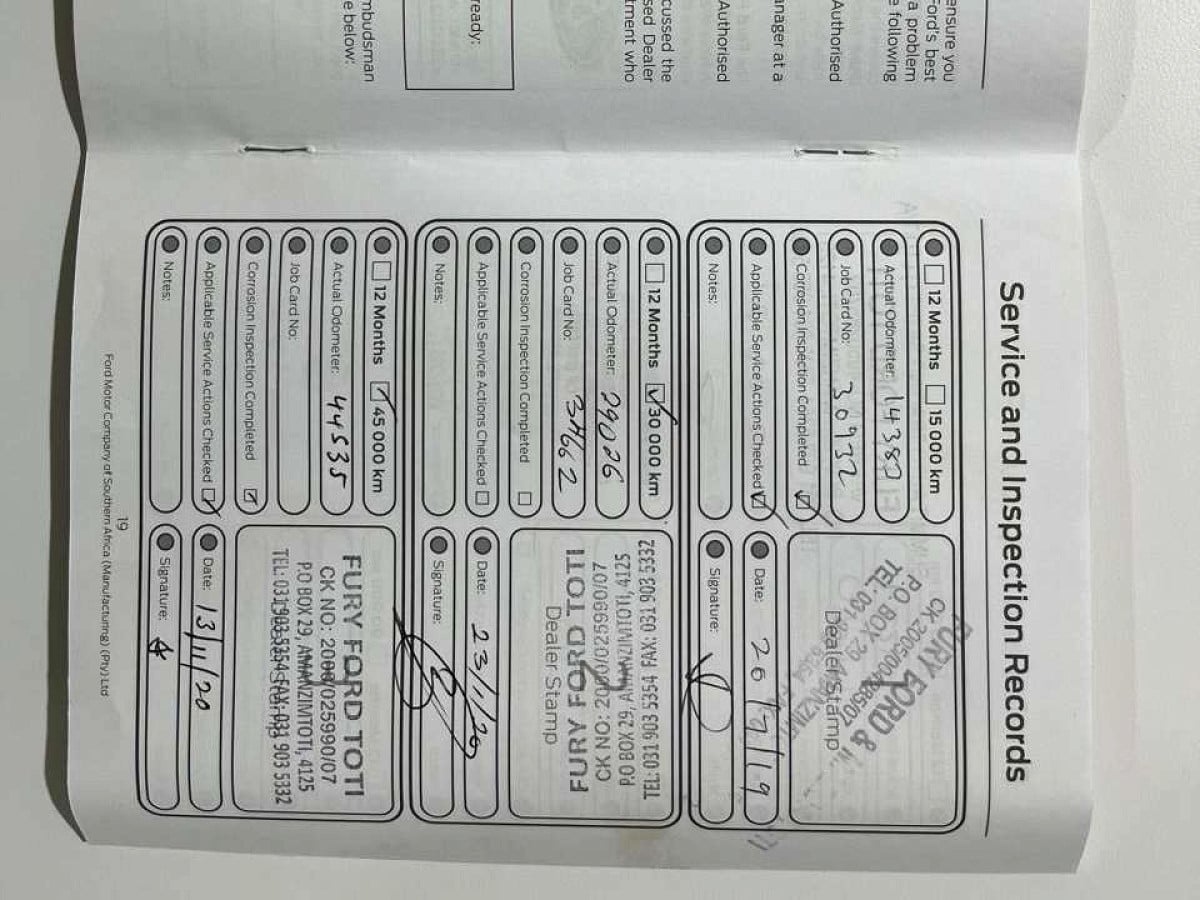 ensure you
Ford's best
a problem
e following
Authorised
anager at a
Authorised
cussed the
sed Dealer
tment who
ready:
mbudsman
e below:
Service and Inspection Records
12 Months 15 000 km
Actual Odometer: 14382
Job Card No: 30932
Corrosion Inspection Completed
Applicable Service Actions Checked
Notes:
FURY FORD &
CK 2005/004885/07
P.O. BOX 29 AMANZIMT
TEL: 031
Dealer Stamp
Date: 20/2/19
Signature:
12 Months 30 000 km
Actual Odometer: 29026
Job Card No:
Corrosion Inspection Completed
Applicable Service Actions Checked
Notes:
TEL: 031 903 5354 FAX: 031 903 5332
P.O BOX 29, AMANZIMTOTI, 4125
CK NO: 2000/025990/07
FURY FORD TOTI
Dealer Stamp
Date: 23/1/20
Signature:
12 Months 45 000 km
Actual Odometer: 44535
Job Card No:
Corrosion Inspection Completed
Applicable Service Actions Checked
Notes:
FURY FORD TOTI
CK NO: 2000/025990/07
P.O BOX 29, AMANZIMTOTI, 4125
TEL: 031 903 5354 FAX: 031 903 5332
Dealer Stamp
Date: 13/11/20
Signature:
19
Ford Motor Company of Southern Africa (Manufacturing) (Pty) Ltd